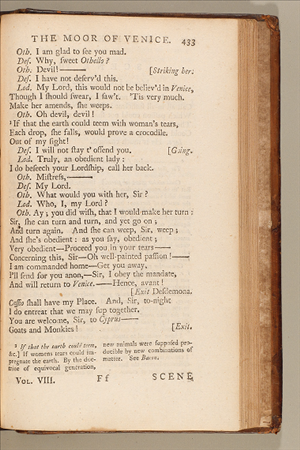 THE MOOR OF VENICE. 433
Oth. I am glad to see you mad.
Def. Why, ſweet Othello?
Oth. Devil!——— [Striking her.
Def. I have not deſerv'd this.
Lod. My Lord, this would not be believ'd in Venice,
Though I ſhould ſwear, I ſaw't. 'Tis very much.
Make her amends, ſhe weeps.
Oth. Oh devil, devil!
¹ If that the earth could teem with woman's tears,
Each drop, ſhe falls, would prove a crocodile.
Out of my ſight!
Def. I will not ſtay t' offend you. [Going.
Lod. Truly, an obedient lady:
I do beſeech your Lordſhip, call her back.
Oth. Miſtreſs,———
Def. My Lord.
Oth. What would you with her, Sir?
Lod. Who, I, my Lord?
Oth. Ay; you did wiſh, that I would make her turn:
Sir, ſhe can turn and turn, and yet go on;
And turn again. And ſhe can weep, Sir, weep;
And ſhe's obedient: as you ſay, obedient;
Very obedient—Proceed you in your tears——
Concerning this, Sir—Oh well-painted paſſion!——
I am commanded home—Get you away,
I'll ſend for you anon,—Sir, I obey the mandate,
And will return to Venice.——Hence, avant!
[Exit Deſdemona.
Caſſio ſhall have my Place. And, Sir, to-night
I do entreat that we may ſup together.
You are welcome, Sir, to Cyprus——
Goats and Monkies! [Exit.
¹ If that the earth could teem,
&c.] If womens tears could im-
pregnate the earth. By the doc-
trine of equivocal generation,
new animals were ſuppoſed pro-
ducible by new combinations of
matter. See Bacon.
VOL. VIII. F f SCENE